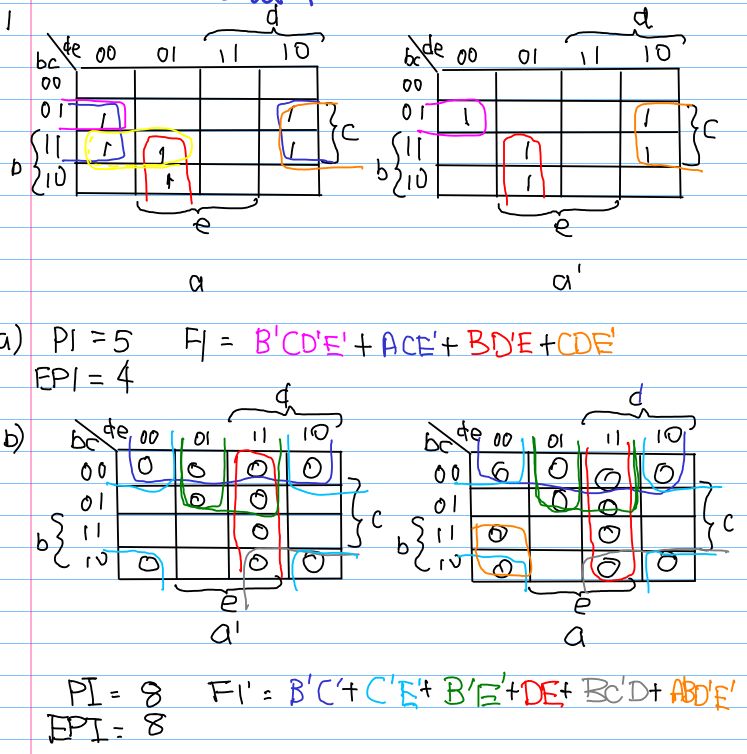 1
d d
bc \ de 00 01 11 10 bc \ de 00 01 11 10
00 00
01 1 1 01 1 1
11 1 1 1 11 1 1
10 1 10 1
b c b c
e e
a a'
a) PI = 5 F1 = B'CD'E' + ACE' + BD'E + CDE'
EPI = 4
d d
b) bc \ de 00 01 11 10 bc \ de 00 01 11 10
00 0 0 0 0 00 0 0 0 0
01 0 0 01 0 0
11 0 11 0 0
10 0 0 0 10 0 0 0
b c b c
e e
a' a
PI = 8 F1' = B'C' + C'E' + B'E' + DE + BC'D + ABD'E'
EPI = 8